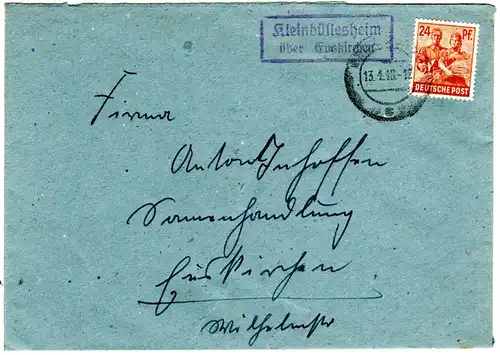 Kleinbüllesheim
über Euskirchen
24 PF.
13.4.48.-1
DEUTSCHE POST
Firma
Anton Inhoffen
Samenhandlung
Euskirchen
Wilhelmstr